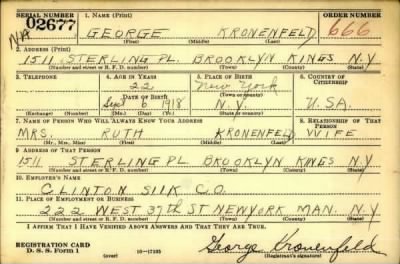 SERIAL NUMBER 1. NAME (Print) ORDER NUMBER
N/A 02677 GEORGE KRONENFELD 666
(First) (Middle) (Last)
2. ADDRESS (Print)
1511 STERLING PL. BROOKLYN KINGS N.Y
(Number and street or R. F. D. number) (Town) (County) (State)
3. TELEPHONE 4. AGE IN YEARS 5. PLACE OF BIRTH 6. COUNTRY OF CITIZENSHIP
22 New York
DATE OF BIRTH (Town or county)
Sept 6 1918 N.Y. U.S.A.
(Exchange) (Number) (Mo.) (Day) (Yr.) (State or country)
7. NAME OF PERSON WHO WILL ALWAYS KNOW YOUR ADDRESS 8. RELATIONSHIP OF THAT PERSON
MRS. RUTH KRONENFELD WIFE
(Mr., Mrs., Miss) (First) (Middle) (Last)
9. ADDRESS OF THAT PERSON
1511 STERLING PL BROOKLYN KINGS N.Y
(Number and street or R. F. D. number) (Town) (County) (State)
10. EMPLOYER'S NAME
CLINTON SILK CO.
11. PLACE OF EMPLOYMENT OR BUSINESS
222 WEST 37th ST NEW YORK MAN. N.Y
(Number and street or R. F. D. number) (Town) (County) (State)
I AFFIRM THAT I HAVE VERIFIED ABOVE ANSWERS AND THAT THEY ARE TRUE.
REGISTRATION CARD
D. S. S. Form 1 (over) 16-17105 George Kronenfeld
(Registrant's signature)